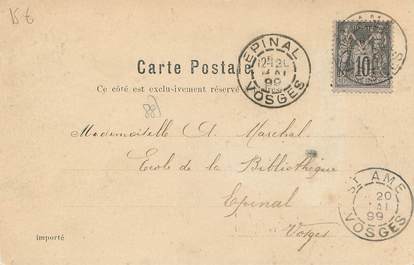 15 €
EPINAL
20
MAI
99
VOSGES
10
Carte Postale
Ce côté est exclusivement réservé
(88)
Mademoiselle A. Marchal
Ecole de la Bibliothèque
Epinal
Vosges
ST AME
20
MAI
99
VOSGES
importé